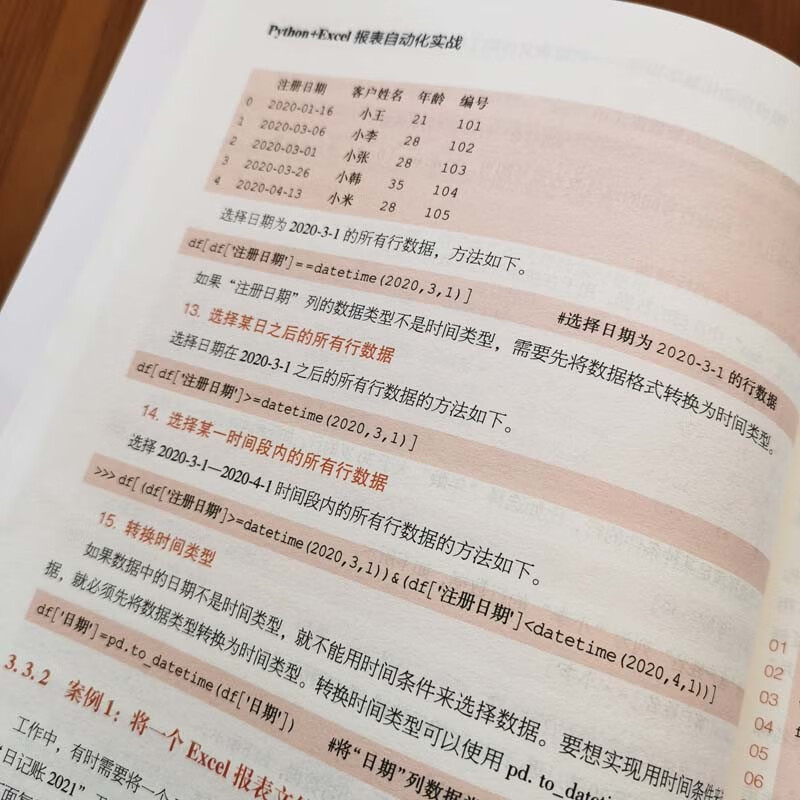 Python+Excel 报表自动化实战
注册日期 客户姓名 年龄 编号
0 2020-01-16 小王 21 101
1 2020-03-06 小李 28 102
2 2020-03-01 小张 28 103
3 2020-03-26 小韩 35 104
4 2020-04-13 小米 28 105
选择日期为 2020-3-1 的所有行数据，方法如下。
df[df['注册日期']==datetime(2020,3,1)] #选择日期为 2020-3-1 的行数据
如果“注册日期”列的数据类型不是时间类型，需要先将数据格式转换为时间类型。
13. 选择某日之后的所有行数据
选择日期在 2020-3-1 之后的所有行数据的方法如下。
df[df['注册日期']>=datetime(2020,3,1)]
14. 选择某一时间段内的所有行数据
选择 2020-3-1—2020-4-1 时间段内的所有行数据的方法如下。
>>> df[(df['注册日期']>=datetime(2020,3,1))&(df['注册日期']<datetime(2020,4,1))]
15. 转换时间类型
如果数据中的日期不是时间类型，就不能用时间条件来选择数据。要想实现用时间条件
据，就必须先将数据类型转换为时间类型。转换时间类型可以使用 pd. to_dateti
df['日期']=pd.to_datetime(df['日期']) #将“日期”列数据
3.3.2 案例 1：将一个 Excel 报表文
工作中，有时需要将一个
“日记账 2021”
01
02
03
04
05
06